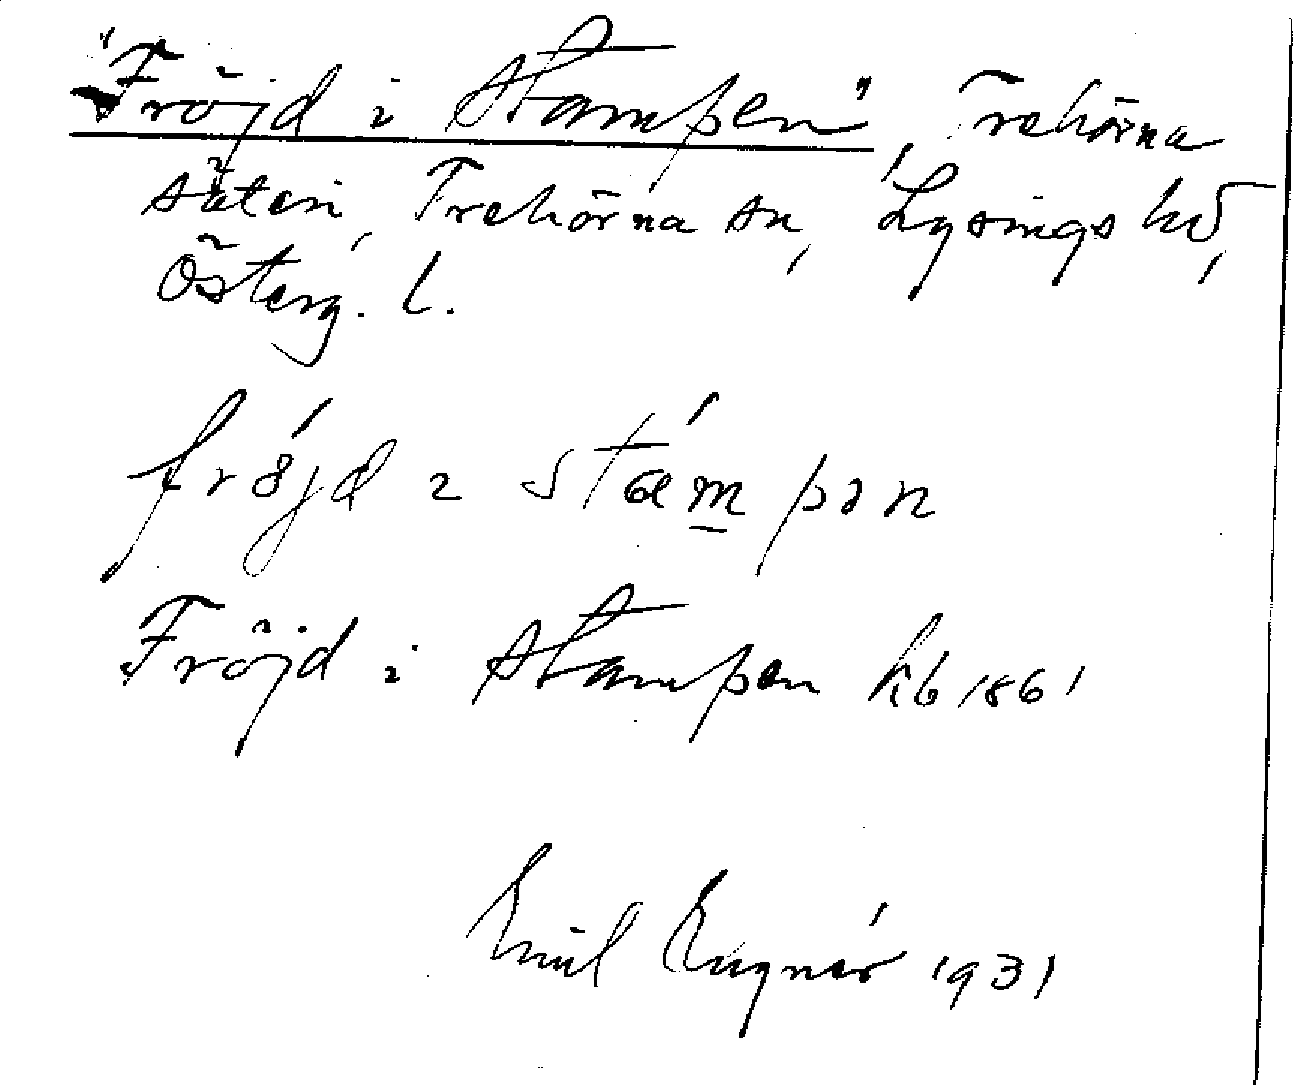 "Fröjd i Stampen", Trehörna
säteri, Trehörna sn, Lysings hd,
Österg. l.
Fröjd i Stampen kb 1861
Emil Eugnér 1931